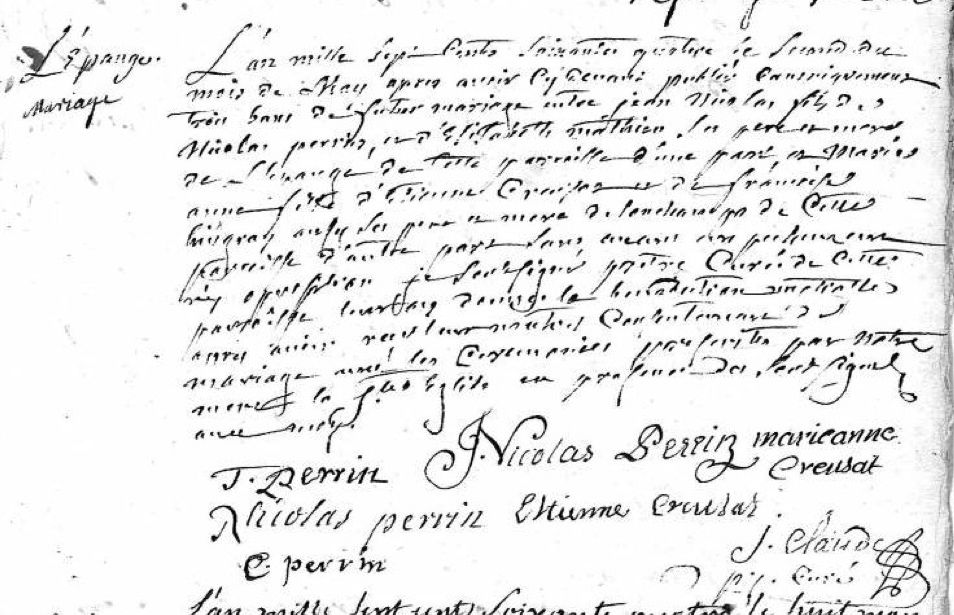 L'Epange.
Mariage
L'an mille sept cents soixante quatre le second du
mois de May apres avoir cy devant publié
trois bans de futur mariage entre jean Nicolas fils de
Nicolas perrin, et d'Elisabeth mathieu ses pere et mere
de L'Epange de cette paroisse d'une part, et Marie
anne fille d'Etienne Creusat et de françoise
aussy ses pere et mere de lonchamps de Cette
paroisse d'autre part sans aucun empechement
ny opposition je soussigné prêtre Curé de Cette
paroisse leur ay donné la benediction nuptialle
apres avoir reçu leur mutuel Consentement de
mariage avec les Ceremonies prescrites par Notre
mere la Ste Eglise en presence des soussignés
avec moy.
J. Nicolas Perrin marieanne
Creusat
J. perrin
Nicolas perrin Etienne Creusat.
C. perrin
J. Claude
Curé
L'an mille sept cents soixante quatre le huit may